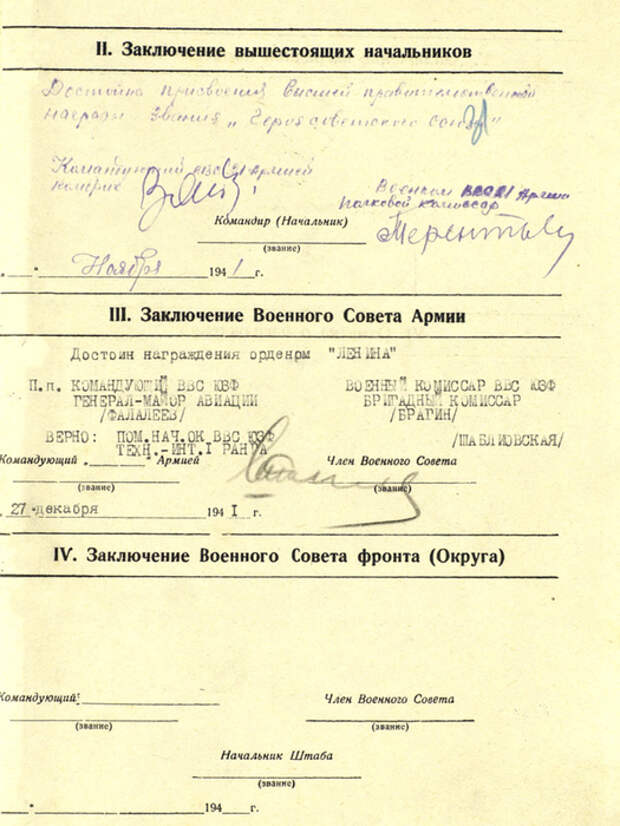 II. Заключение вышестоящих начальников
Достойно присвоения высшей правительственной
награды звания „Героя советского союза"
Командующий ВВС 21 Армией
Военком ВВС 21 Армии
полковой комиссар
Командир (Начальник)
(звание)
„ " Ноября 1941 г.
III. Заключение Военного Совета Армии
Достоин награждения орденом "ЛЕНИНА"
П.п. КОМАНДУЮЩИЙ ВВС ЮЗФ ВОЕННЫЙ КОМИССАР ВВС ЮЗФ
ГЕНЕРАЛ-МАЙОР АВИАЦИИ БРИГАДНЫЙ КОМИССАР
/ФАЛАЛЕЕВ/ /БРАГИН/
ВЕРНО: ПОМ.НАЧ.ОК ВВС ЮЗФ
ТЕХН.-ИНТ.I РАНГА /ШАБЛИОВСКАЯ/
Командующий Армией Член Военного Совета
(звание) (звание)
27 декабря 194I г.
IV. Заключение Военного Совета фронта (Округа)
Командующий: Член Военного Совета
(звание) (звание)
Начальник Штаба
(звание)
" 194 г.